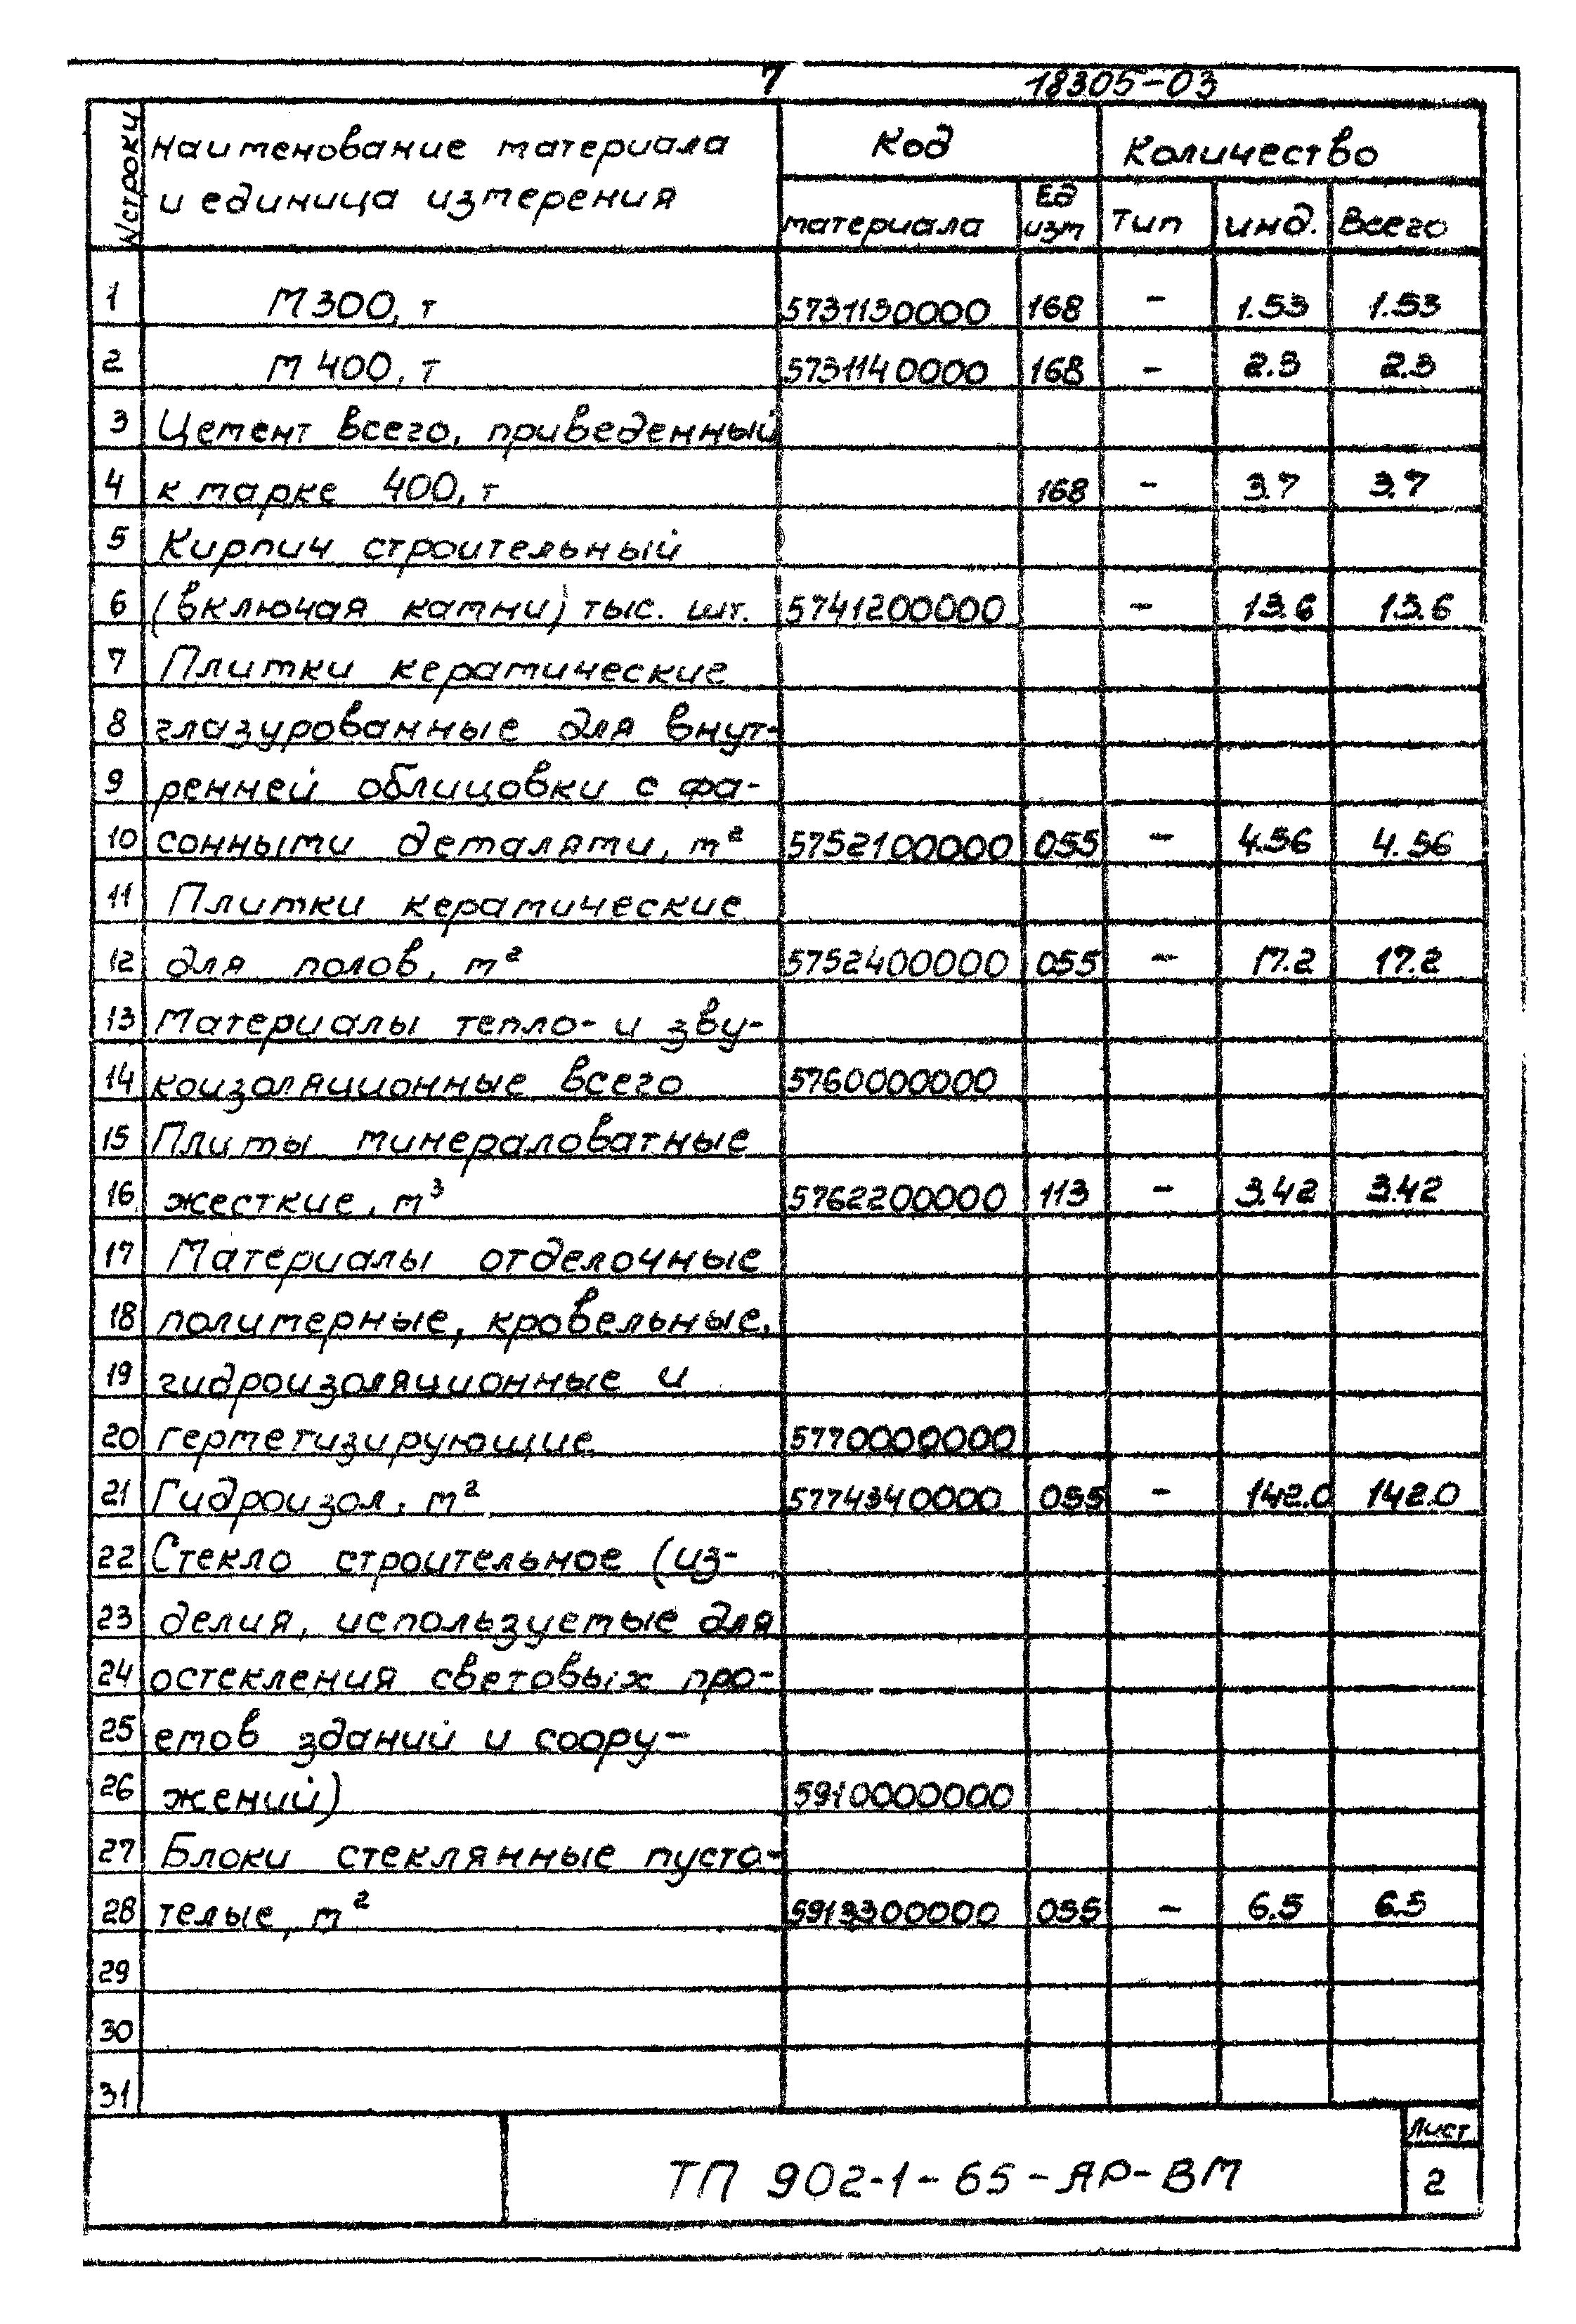 7 18305-03
N строки Наименование материала Код Количество
и единица измерения материала Ед изм Тип инд. Всего
1 М300, т 5731130000 168 - 1.53 1.53
2 М 400, т 5731140000 168 - 2.3 2.3
3 Цемент всего, приведенный
4 к марке 400, т 168 - 3.7 3.7
5 Кирпич строительный
6 (включая камни) тыс. шт. 5741200000 - 13.6 13.6
7 Плитки керамические
8 глазурованные для внут-
9 ренней облицовки с фа-
10 сонными деталями, м² 5752100000 055 - 4.56 4.56
11 Плитки керамические
12 для полов, м² 5752400000 055 - 17.2 17.2
13 Материалы тепло- и зву-
14 коизоляционные всего 5760000000
15 Плиты минераловатные
16 жесткие, м³ 5762200000 113 - 3.42 3.42
17 Материалы отделочные
18 полимерные, кровельные,
19 гидроизоляционные и
20 герметизирующие 5770000000
21 Гидроизол, м² 5774340000 055 - 142.0 142.0
22 Стекло строительное (из-
23 делия, используемые для
24 остекления световых про-
25 емов зданий и соору-
26 жений) 5910000000
27 Блоки стеклянные пусто-
28 телые, м² 5913300000 055 - 6.5 6.5
29
30
31
ТП 902-1-65-АР-ВМ Лист
2